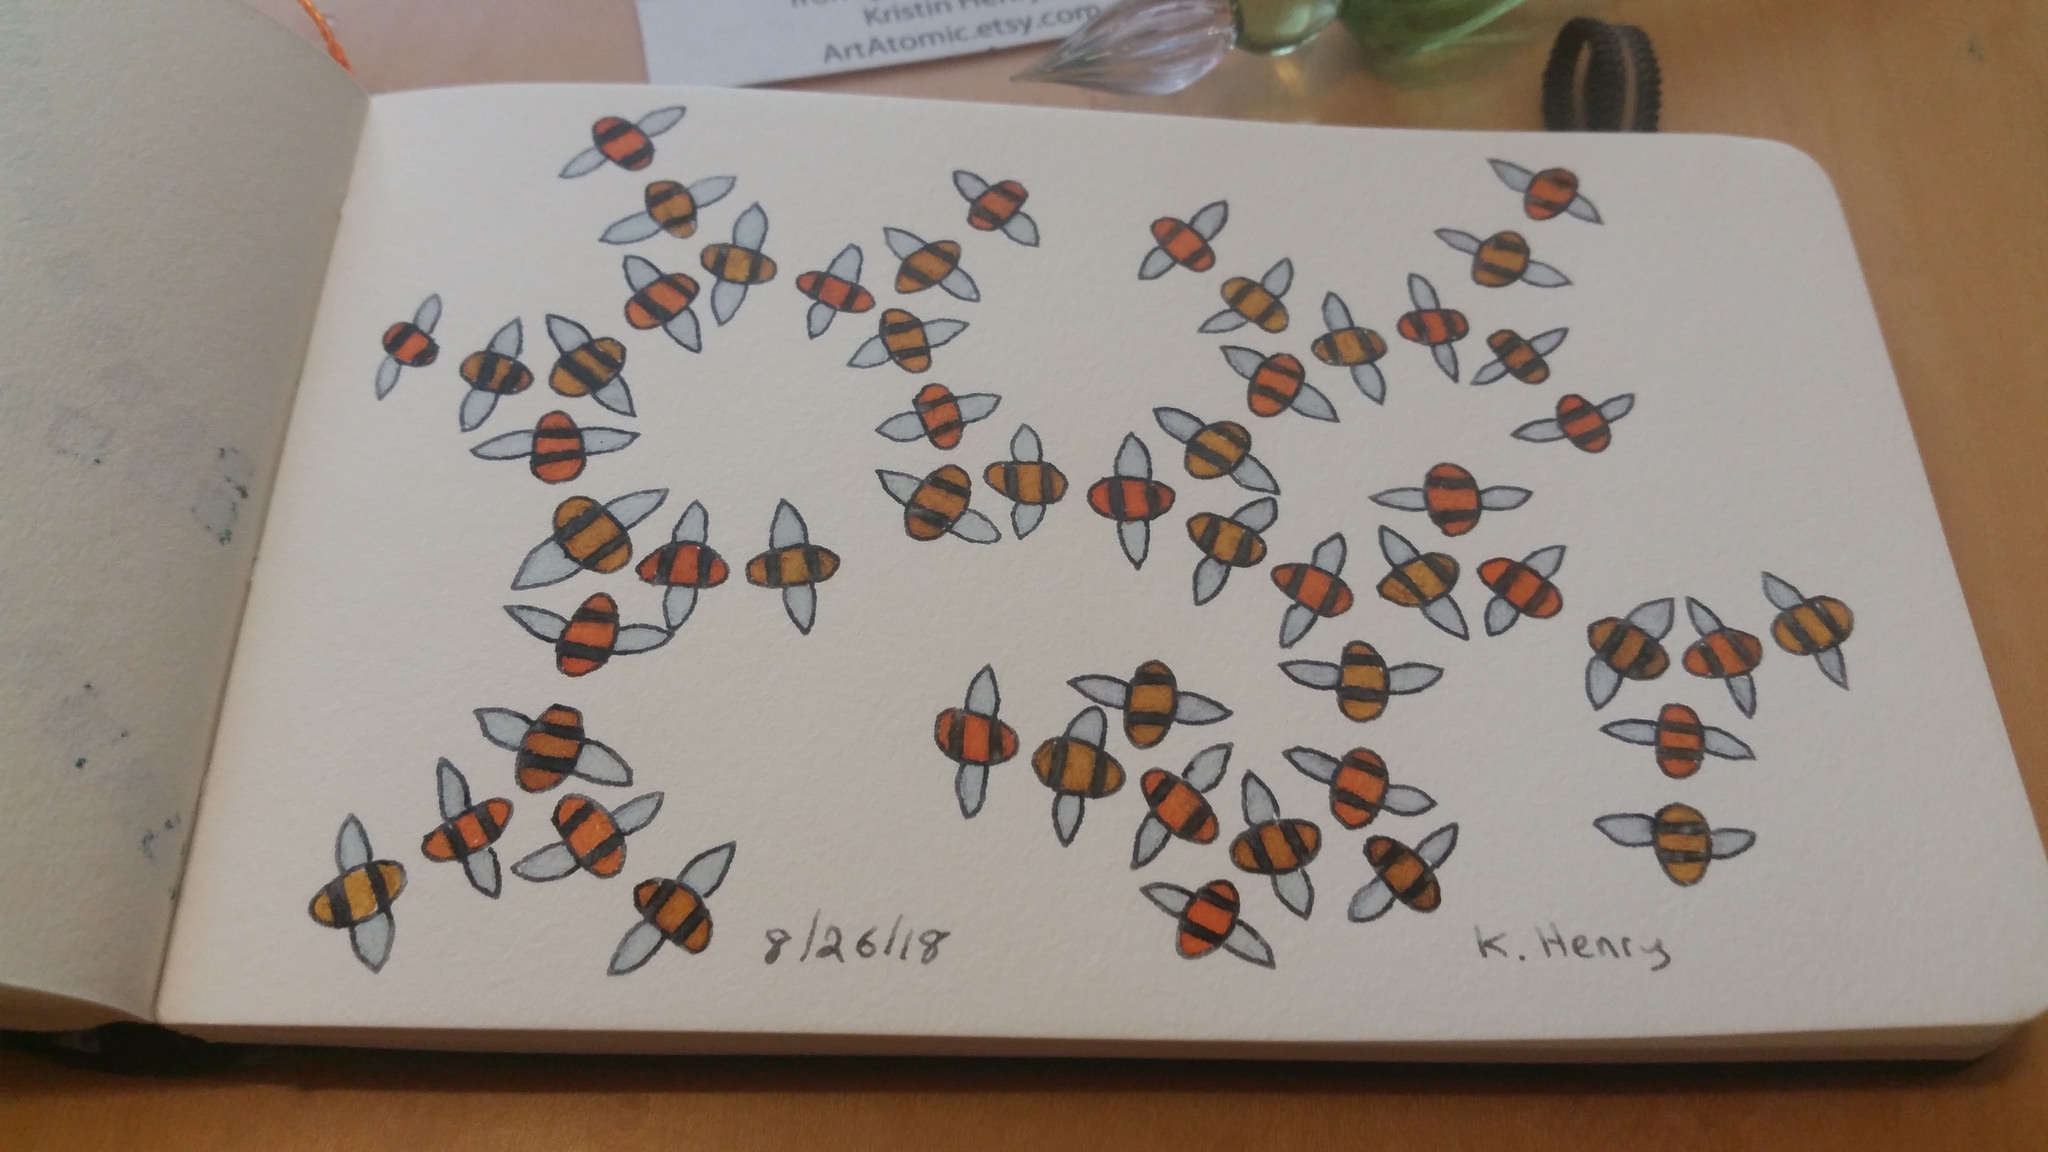 Kristin Henry
ArtAtomic.etsy.com
8/26/18
K. Henry